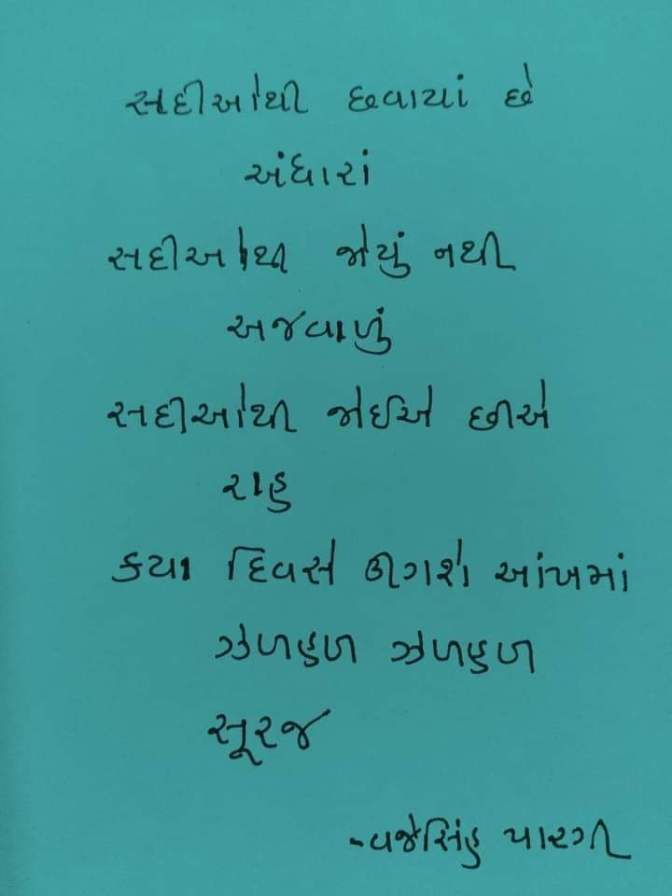 સદીઓથી છવાયાં છે
અંધારાં
સદીઓથી જોયું નથી
અજવાળું
સદીઓથી જોઈએ છીએ
રાહ
કયા દિવસે ઊગશે આંખમાં
ઝળહળ ઝળહળ
સૂરજ
-વજેસિંહ પારગી